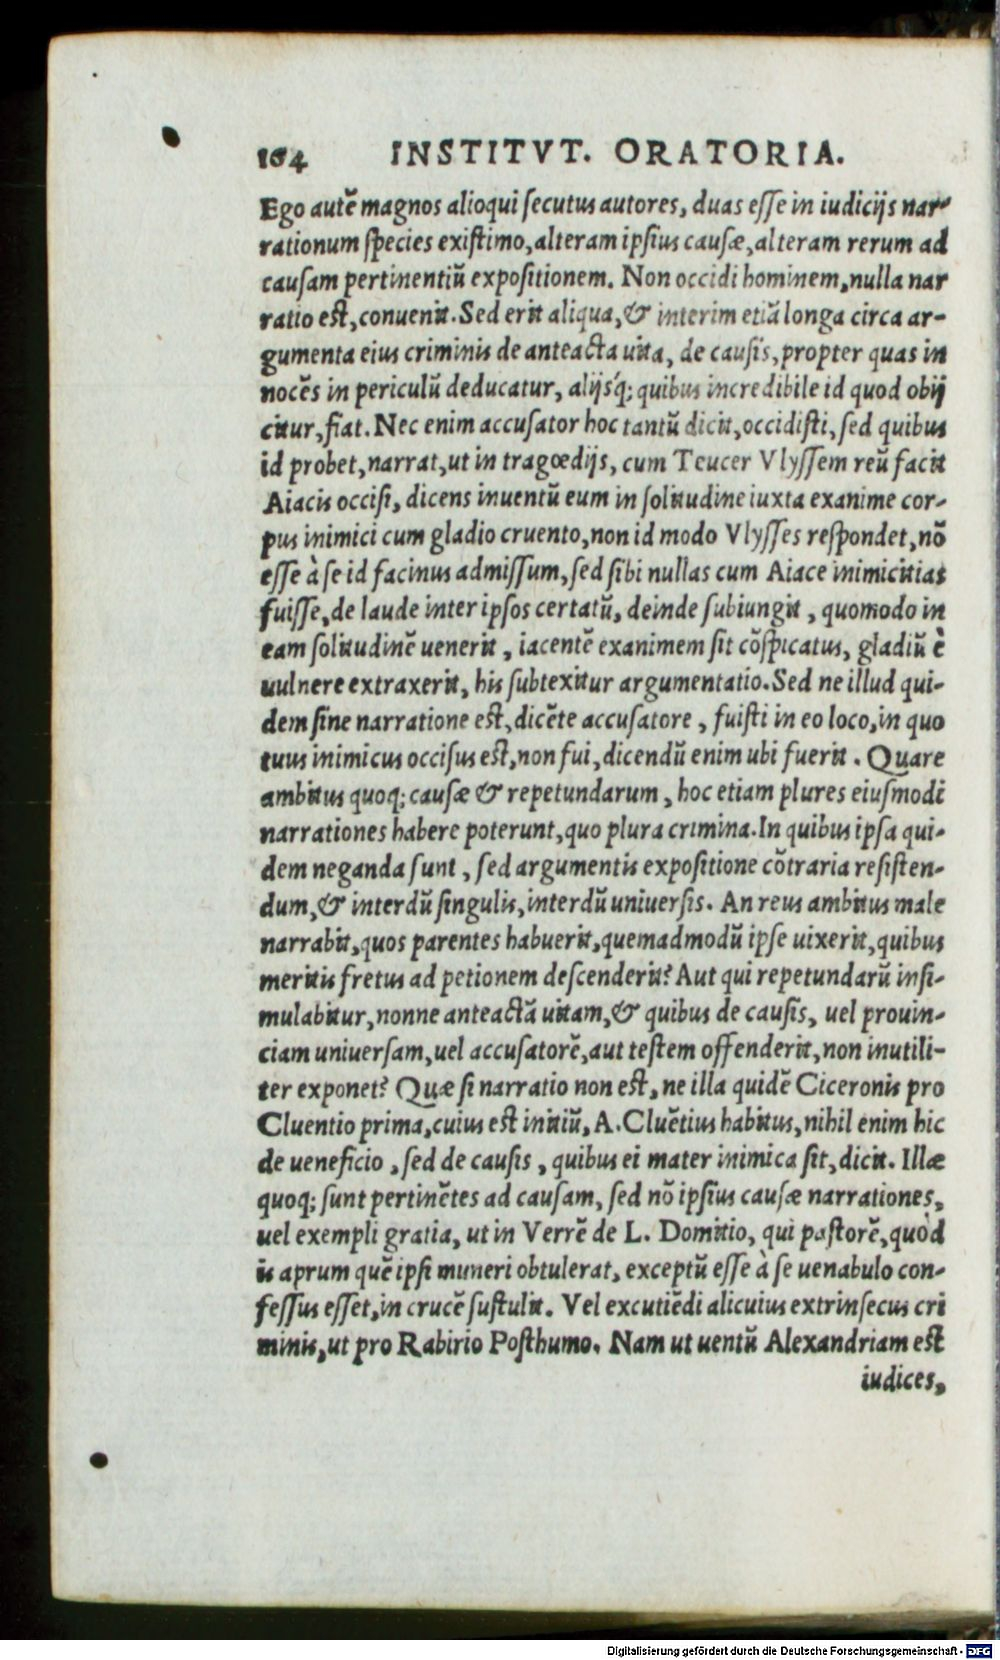 164 INSTITVT. ORATORIA.
Ego autẽ magnos alioqui secutus autores, duas esse in iudicijs nar-
rationum species existimo, alteram ipsius causæ, alteram rerum ad
causam pertinentiũ expositionem. Non occidi hominem, nulla nar
ratio est, conuenit. Sed erit aliqua, & interim etiã longa circa ar-
gumenta eius criminis de anteacta uita, de causis, propter quas in
nocẽs in periculũ deducatur, alijsq́; quibus incredibile id quod obij
citur, fiat. Nec enim accusator hoc tantũ dicit, occidisti, sed quibus
id probet, narrat, ut in tragœdijs, cum Teucer Vlyssem reũ facit
Aiacis occisi, dicens inuentũ eum in solitudine iuxta exanime cor-
pus inimici cum gladio cruento, non id modo Vlysses respondet, nõ
esse à se id facinus admissum, sed sibi nullas cum Aiace inimicitias
fuisse, de laude inter ipsos certatũ, deinde subiungit, quomodo in
eam solitudinẽ uenerit, iacentẽ exanimem sit cõspicatus, gladiũ è
uulnere extraxerit, his subtexitur argumentatio. Sed ne illud qui-
dem sine narratione est, dicẽte accusatore, fuisti in eo loco, in quo
tuus inimicus occisus est, non fui, dicendũ enim ubi fuerit. Quare
ambitus quoq; causæ & repetundarum, hoc etiam plures eiusmodi
narrationes habere poterunt, quo plura crimina. In quibus ipsa qui-
dem neganda sunt, sed argumentis expositione cõtraria resisten-
dum, & interdũ singulis, interdũ uniuersis. An reus ambitus male
narrabit, quos parentes habuerit, quemadmodũ ipse uixerit, quibus
meritis fretus ad petionem descenderit? Aut qui repetundarũ insi-
mulabitur, nonne anteactã uitam, & quibus de causis, uel prouin-
ciam uniuersam, uel accusatorẽ, aut testem offenderit, non inutili-
ter exponet? Quæ si narratio non est, ne illa quidẽ Ciceronis pro
Cluentio prima, cuius est initiũ, A. Cluẽtius habitus, nihil enim hic
de ueneficio, sed de causis, quibus ei mater inimica sit, dicit. Illæ
quoq; sunt pertinẽtes ad causam, sed nõ ipsius causæ narrationes,
uel exempli gratia, ut in Verrẽ de L. Domitio, qui pastorẽ, quòd
is aprum quẽ ipsi muneri obtulerat, exceptũ esse à se uenabulo con-
fessus esset, in crucẽ sustulit. Vel excutiẽdi alicuius extrinsecus cri
minis, ut pro Rabirio Posthumo. Nam ut uentũ Alexandriam est
iudices,
Digitalisierung gefördert durch die Deutsche Forschungsgemeinschaft - DFG